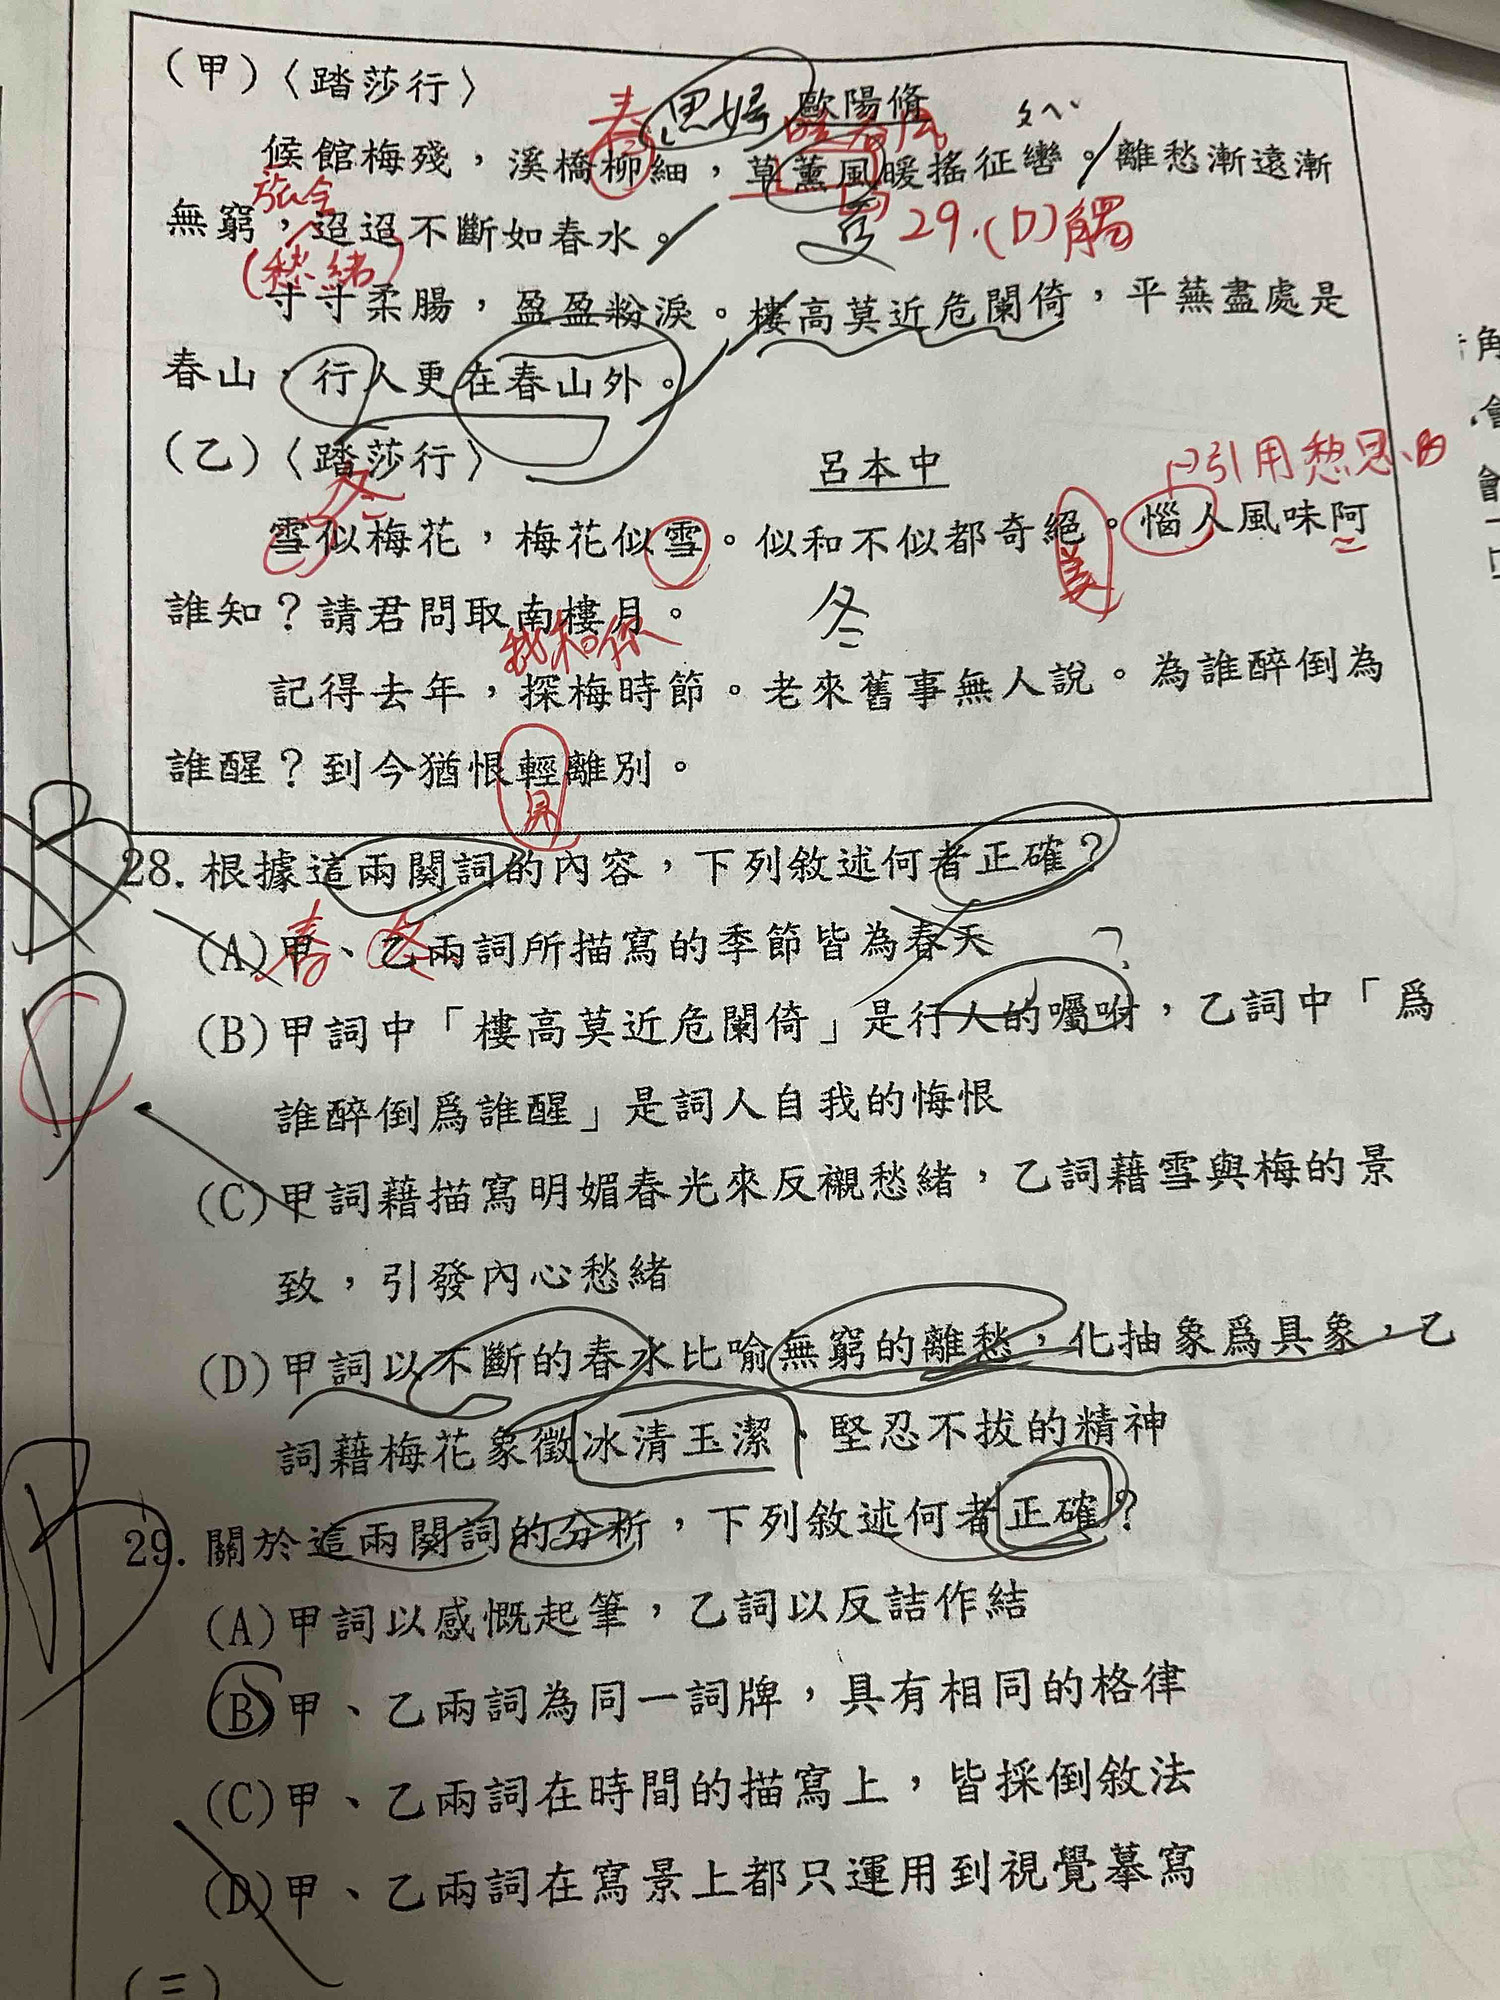 (甲)〈踏莎行〉
思婦 歐陽脩
春
候館梅殘，溪橋柳細，草薰風暖搖征轡。離愁漸遠漸
旅舍
無窮，迢迢不斷如春水。
29.(D)觸
(愁緒)
寸寸柔腸，盈盈粉淚。樓高莫近危闌倚，平蕪盡處是
春山，行人更在春山外。
(乙)〈踏莎行〉
呂本中
引用愁思
冬
雪似梅花，梅花似雪。似和不似都奇絕。惱人風味阿
美
誰知？請君問取南樓月。
冬
我和你
記得去年，探梅時節。老來舊事無人說。為誰醉倒為
誰醒？到今猶恨輕離別。
B
28.根據這兩闋詞的內容，下列敘述何者正確？
春 冬
(A)甲、乙兩詞所描寫的季節皆為春天
?
(B)甲詞中「樓高莫近危闌倚」是行人的囑咐，乙詞中「爲
誰醉倒爲誰醒」是詞人自我的悔恨
D
(C)甲詞藉描寫明媚春光來反襯愁緒，乙詞藉雪與梅的景
致，引發內心愁緒
(D)甲詞以不斷的春水比喻無窮的離愁，化抽象爲具象，乙
詞藉梅花象徵冰清玉潔、堅忍不拔的精神
B
29.關於這兩闋詞的分析，下列敘述何者正確？
(A)甲詞以感慨起筆，乙詞以反詰作結
(B)甲、乙兩詞為同一詞牌，具有相同的格律
(C)甲、乙兩詞在時間的描寫上，皆採倒敘法
(D)甲、乙兩詞在寫景上都只運用到視覺摹寫
(三)